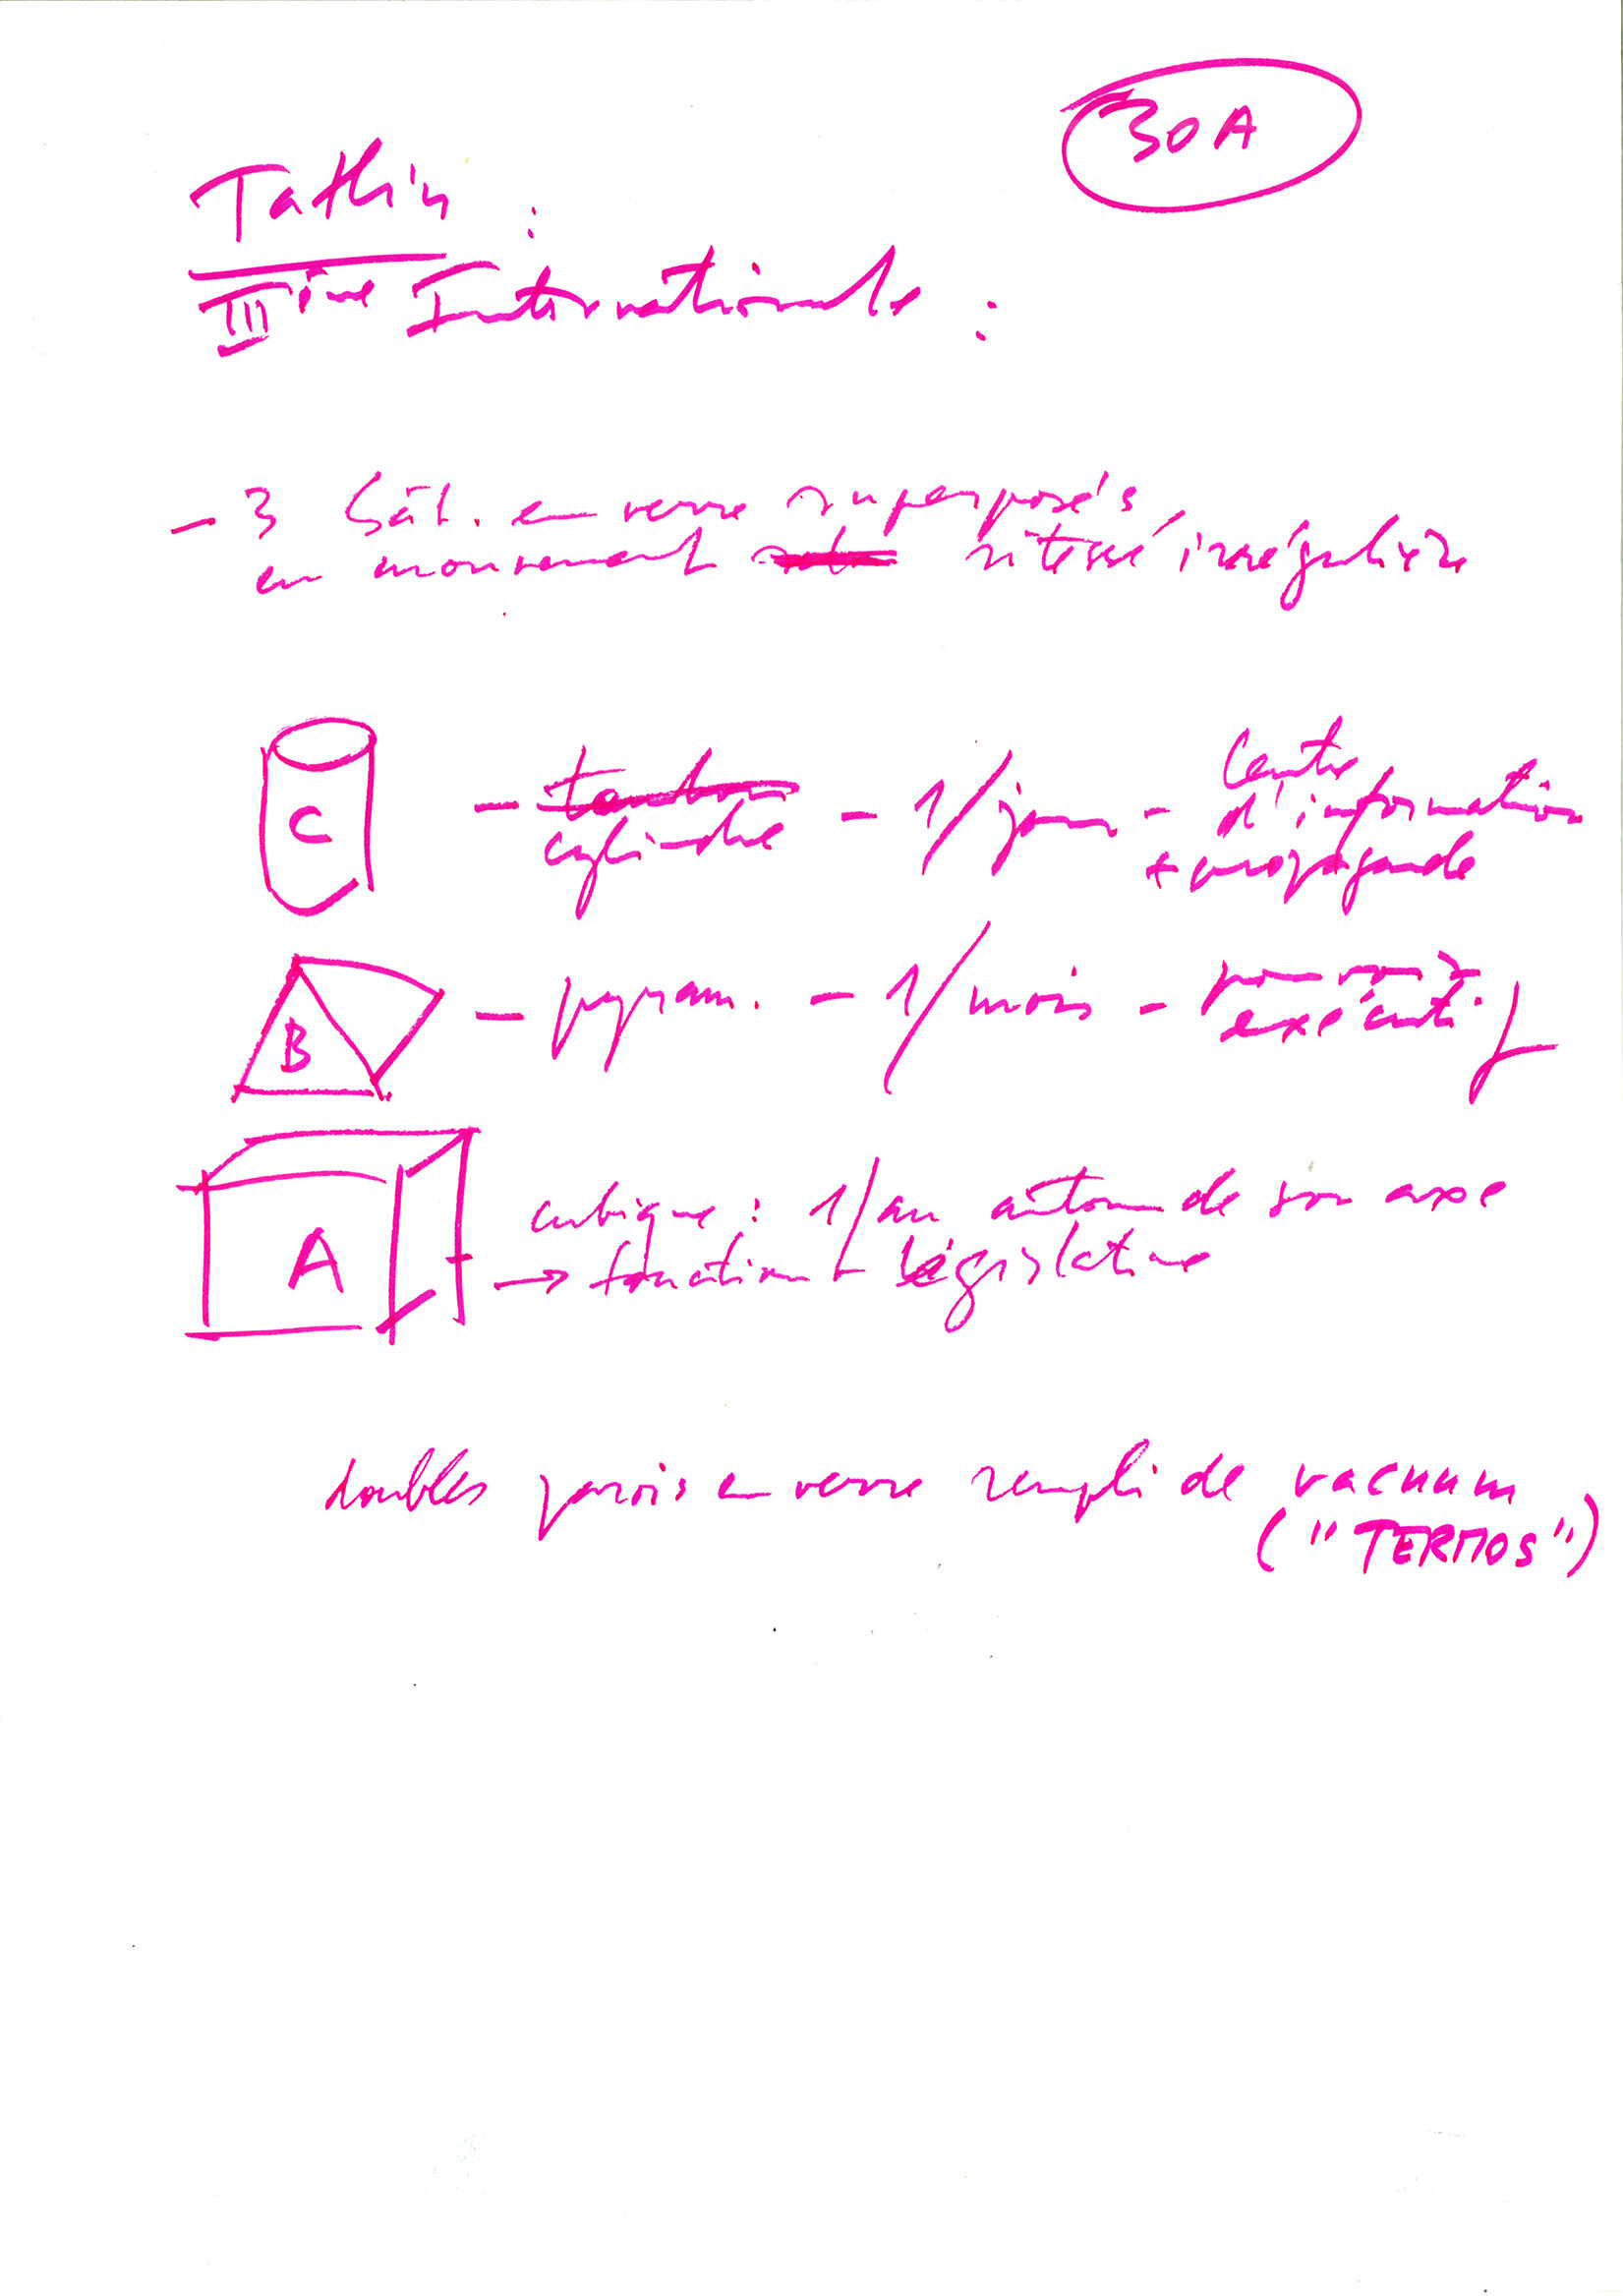 30A
Tatlin :
IIIème Internationale :
- 3 bât. en verre superposés
en mouvement vitesse irrégulière
C - cylindre - 1/jour - Centre
d'information
+ propagande
B - pyram. - 1/mois - pouvoir
exécutif
A cubique : 1/an autour de son axe
→ fonction législative
doubles parois en verre rempli de vacuum
("TERMOS")